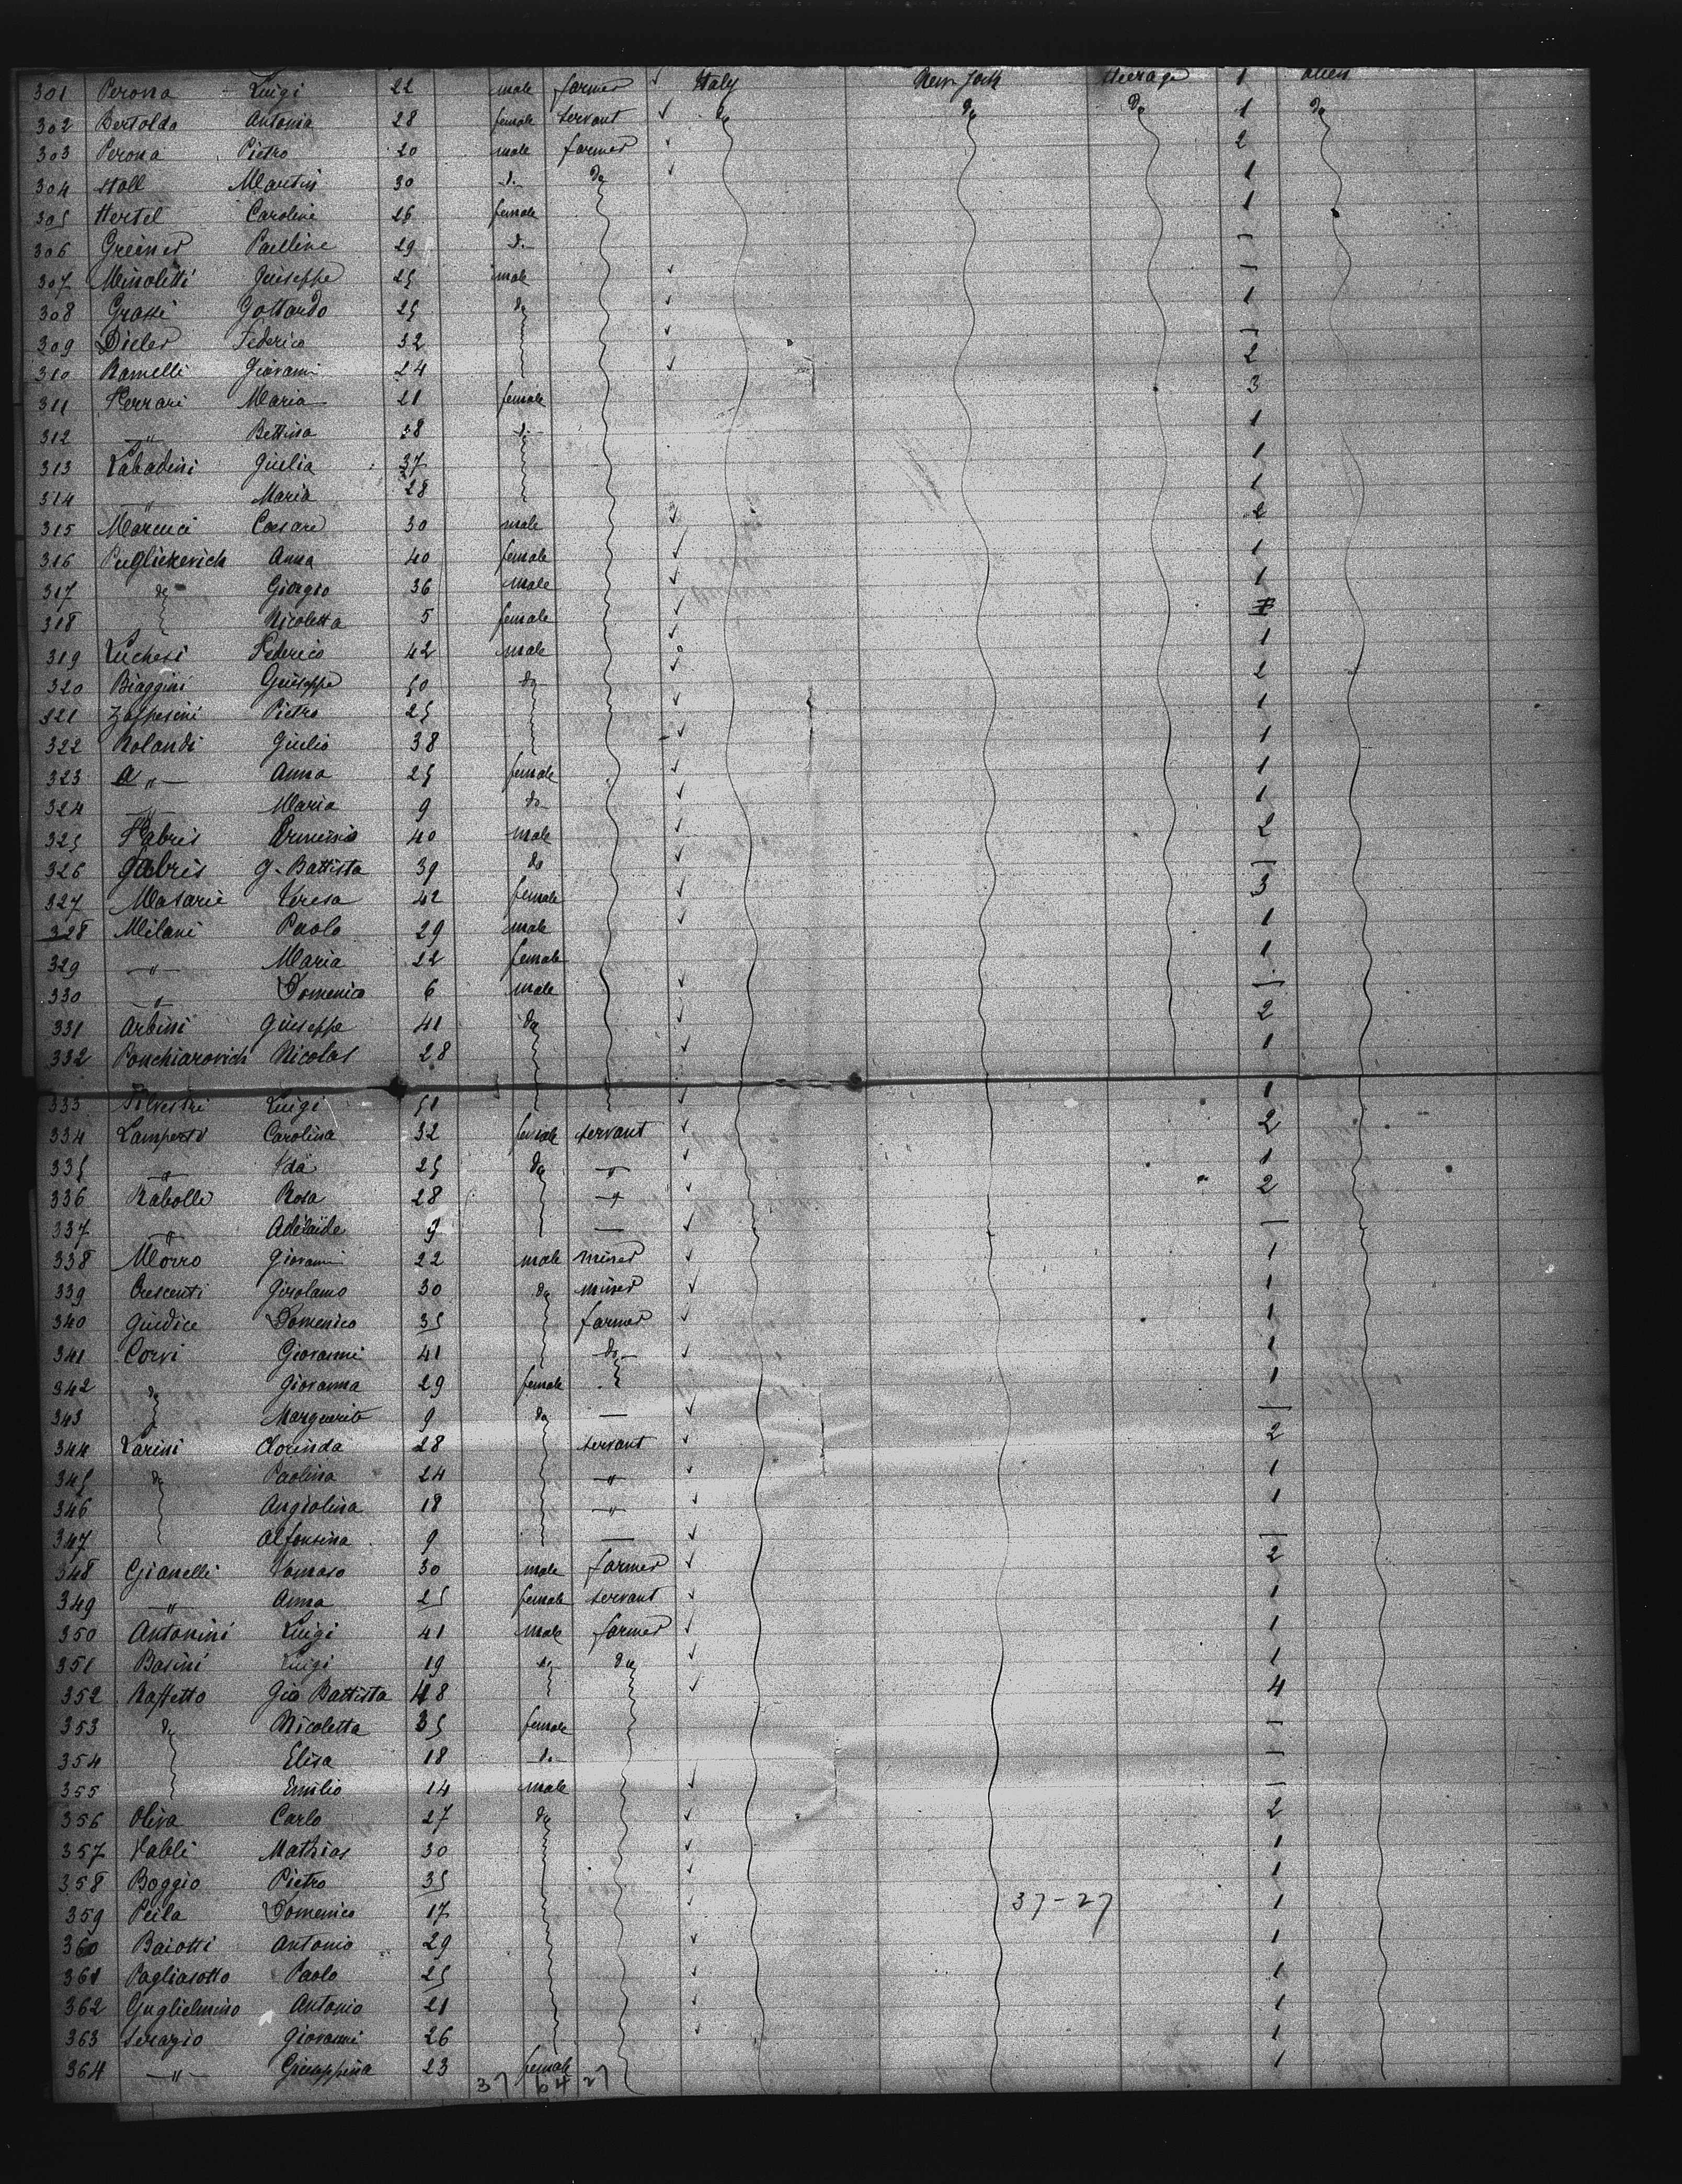 301 Perona Luigi 22 male farmer ✓ Italy New York steerage 1 alien
302 Bertoldo Antonia 28 female servant ✓ do do do 1 do
303 Perona Pietro 20 male farmer ✓ 2
304 Stoll Martin 30 do do ✓ 1
305 Hertel Caroline 26 female 1
306 Greiner Pauline 29 do —
307 Minoletti Giuseppe 25 male ✓ —
308 Grassi Gottardo 25 do ✓ 1
309 Dieler Federico 32 ✓ —
310 Ramelli Giovanni 24 ✓ 2
311 Ferrari Maria 21 female 3
312 " Bettina 28 do 1
313 Labadini Giulia 37 1
314 " Maria 28 1
315 Marcuci Caesare 30 male ✓ 2
316 Puglickevich Anna 40 female ✓ 1
317 do Giorgio 36 male ✓ 1
318 Nicoletta 5 female ✓
319 Luchesi Federico 42 male ✓ 1
320 Biaggini Giuseppe 50 do ✓ 2
321 Pietro 25 ✓ 1
322 Rolandi Giulio 38 ✓ 1
323 " Anna 25 female ✓ 1
324 " Maria 9 do ✓ 1
325 Fabris 40 male ✓ 2
326 Fabris G. Battista 39 do ✓ —
327 Masarie Teresa 42 female ✓ 3
328 Milani Paolo 29 male ✓ 1
329 " Maria 22 female 1
330 " Domenico 6 male ✓ —
331 Arbini Giuseppe 41 do ✓ 2
332 Ponchiarovich Nicolas 28 ✓ 1
333 Silvestri Luigi 51 ✓ 1
334 Lamperti Carolina 32 female servant ✓ 2
335 " Ida 25 do " ✓ 1
336 Rabolli Rosa 28 " ✓ 2
337 " Adelaide 9 — ✓ —
338 Morro Giovanni 22 male miner ✓ 1
339 Crescenti Girolamo 30 do miner ✓ 1
340 Giudice Domenico 35 farmer ✓ 1
341 Corvi Giovanni 41 do ✓ 1
342 do Giovanna 29 female 1
343 Marguerite 9 do — ✓ —
344 Larini Clorinda 28 servant ✓ 2
345 do Paolina 24 " ✓ 1
346 Angiolina 18 " ✓ 1
347 Alfonsina 9 — ✓ —
348 Gianelli Tomaso 30 male farmer ✓ 2
349 " Anna 25 female servant ✓ 1
350 Antonini Luigi 41 male farmer ✓ 1
351 Basini Luigi 19 do do ✓ 1
352 Raffetto Gio Battista 48 ✓ 4
353 do Nicoletta 35 female —
354 Elisa 18 do —
355 Emilio 14 male ✓ —
356 Oliva Carlo 27 do ✓ 2
357 Mathias 30 ✓ 1
358 Boggio Pietro 35 ✓ 1
359 Peila Domenico 17 ✓ 37-27 1
360 Baiotti Antonio 29 ✓ 1
361 Pagliasotto Paolo 25 ✓ 1
362 Guglielmino Antonio 21 ✓ 1
363 Serazio Giovanni 26 ✓ 1
364 " Giuseppina 23 female 1
37 64 27